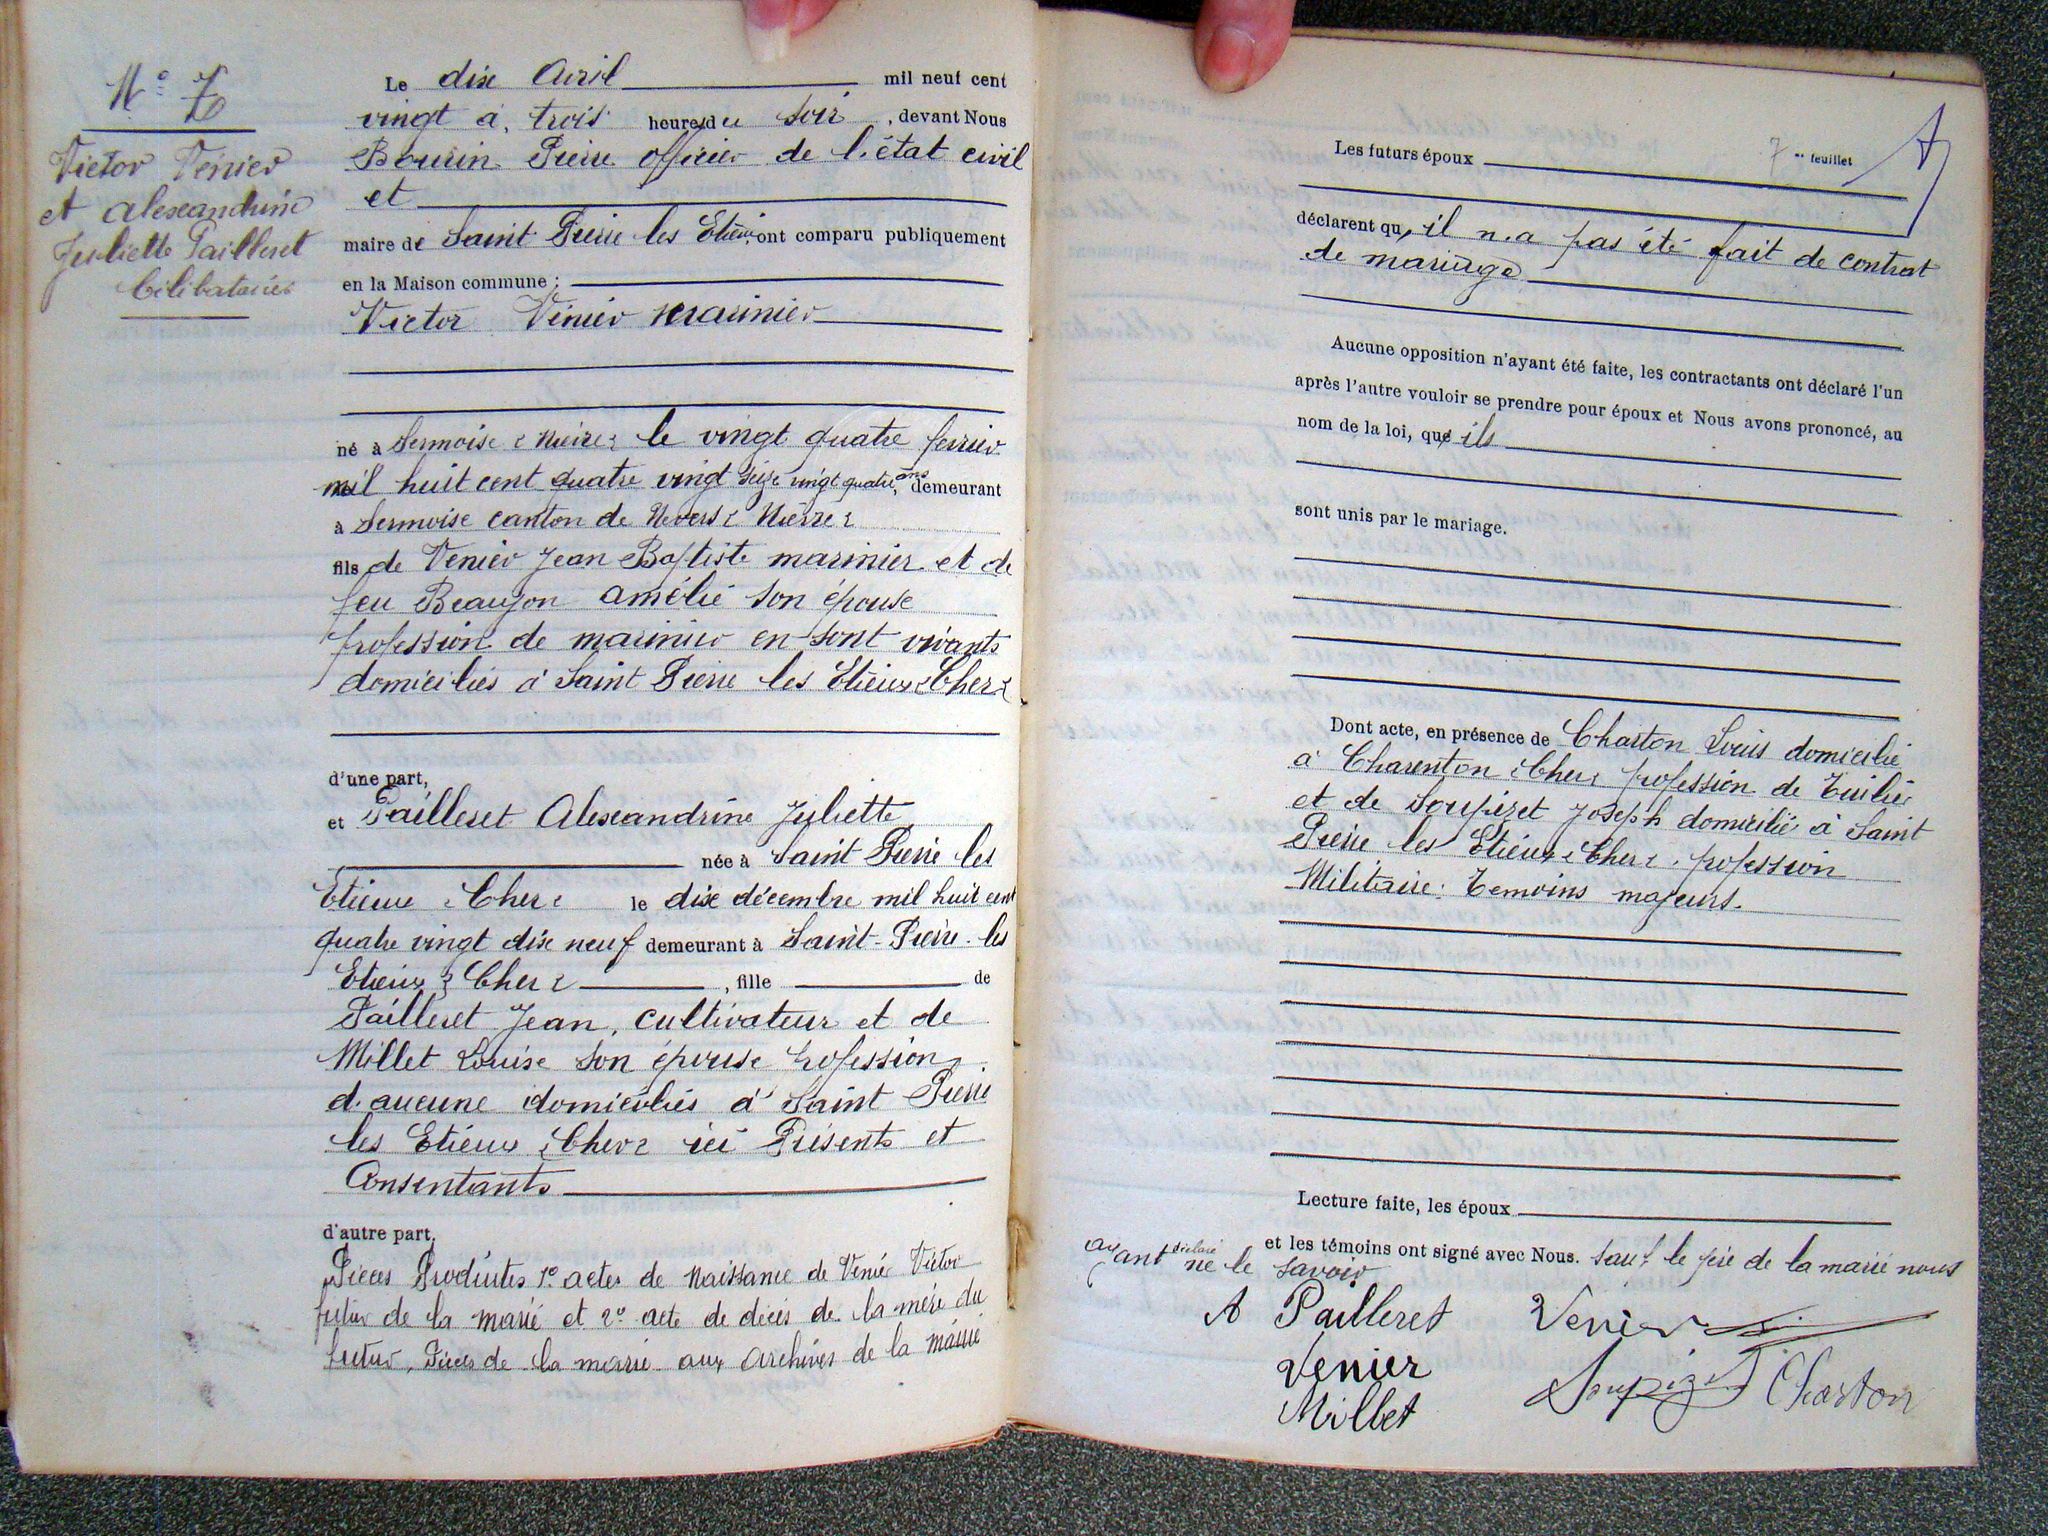 N° 7
Victor Venier
et Alexandrine
Juliette Pailleret
Célibataires
Le dix Avril mil neuf cent
vingt à trois heures du soir, devant Nous
Bourin Pierre officier de l'état civil
et
maire de Saint Pierre les Etieux ont comparu publiquement
en la Maison commune :
Victor Venier marinier
né à Sermoise (Nièvre) le vingt quatre fevrier
mil huit cent quatre vingt seize vingt quatre ans, demeurant
à Sermoise canton de Nevers (Nièvre)
fils de Venier Jean Baptiste marinier et de
feu Beaujon Amélie son épouse
profession de marinier en sont vivants
domiciliés à Saint Pierre les Etieux (Cher)
d'une part,
et Pailleret Alexandrine Juliette
née à Saint Pierre les
Etieux (Cher) le dix décembre mil huit cent
quatre vingt dix neuf demeurant à Saint-Pierre-les
Etieux (Cher), fille de
Pailleret Jean, cultivateur et de
Millet Louise son épouse profession
d'aucune domiciliés à Saint Pierre
les Etieux (Cher) ici Présents et
Consentants
d'autre part.
Pièces Produites 1° actes de Naissance de Venier Victor
futur de la marié et 2° acte de décès de la mère du
futur, Pièces de la marié aux archives de la mairie
7me feuillet
Les futurs époux
déclarent qu'il n'a pas été fait de contrat
de mariage
Aucune opposition n'ayant été faite, les contractants ont déclaré l'un
après l'autre vouloir se prendre pour époux et Nous avons prononcé, au
nom de la loi, que ils
sont unis par le mariage.
Dont acte, en présence de Charton Louis domicilié
à Charenton (Cher) profession de Tuilier
et de Soupizet Joseph domicilié à Saint
Pierre les Etieux (Cher) profession
Militaire. Temoins majeurs.
Lecture faite, les époux
et les témoins ont signé avec Nous. sauf le père de la marié nous
ayant déclaré ne le savoir
A Pailleret Venier
Venier Soupizet Charton
Millet